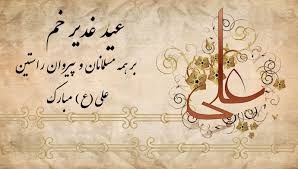 عید غدیر خم
بر همه مسلمانان و پیروان راستین
علی (ع) مبارک
علی